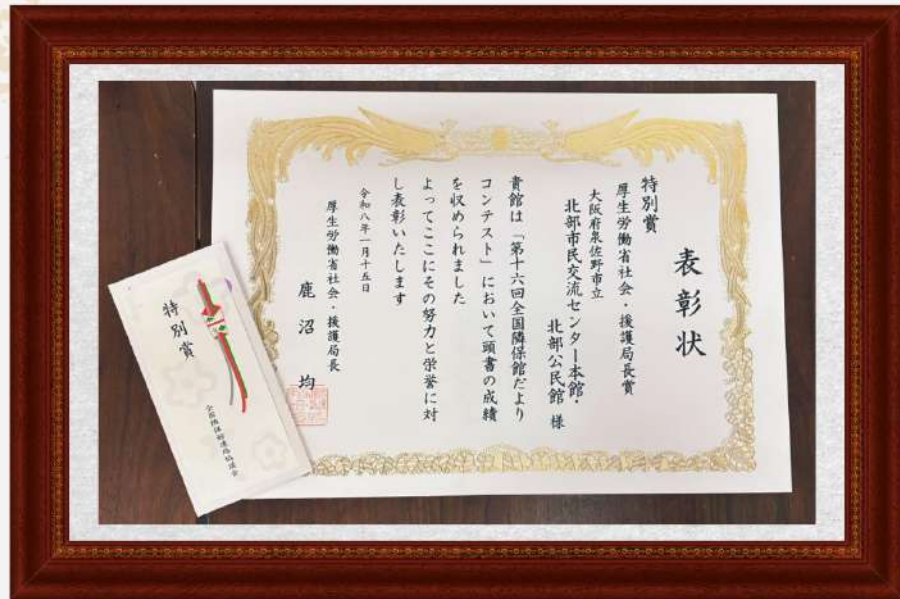 表彰状
特別賞
厚生労働省社会・援護局長賞
大阪府泉佐野市立
北部市民交流センター本館・
北部公民館 様
貴館は「第十六回全国隣保館だより
コンテスト」において頭書の成績
を収められました
よってここにその努力と栄誉に対
し表彰いたします
令和八年一月十五日
厚生労働省社会・援護局長
鹿沼 均
特別賞
全国隣保館連絡協議会